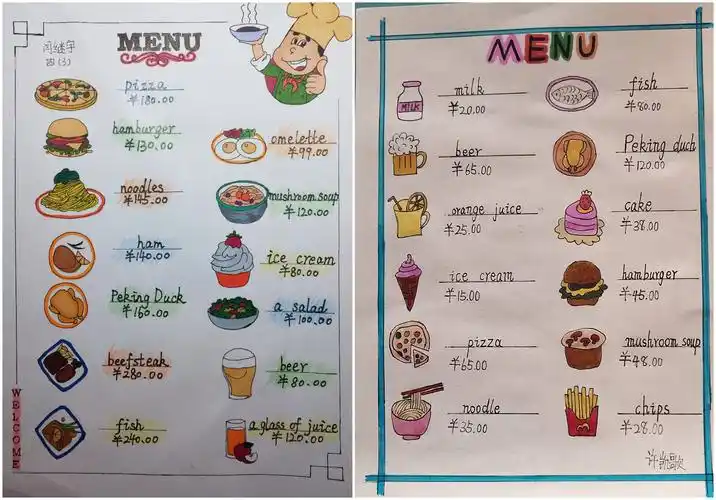 闫继宇
四(3)
MENU
pizza
¥180.00
hamburger
¥130.00
noodles
¥145.00
ham
¥140.00
Peking Duck
¥160.00
beefsteak
¥280.00
fish
¥240.00
omelette
¥99.00
mushroom soup
¥120.00
ice cream
¥80.00
a salad
¥100.00
beer
¥80.00
a glass of juice
¥120.00
WELCOME
MENU
milk
MILK
¥20.00
beer
¥65.00
orange juice
¥25.00
ice cream
¥15.00
pizza
¥65.00
noodle
¥35.00
fish
¥80.00
Peking duch
¥120.00
cake
¥38.00
hamburger
¥45.00
mushroom soup
¥48.00
chips
¥28.00